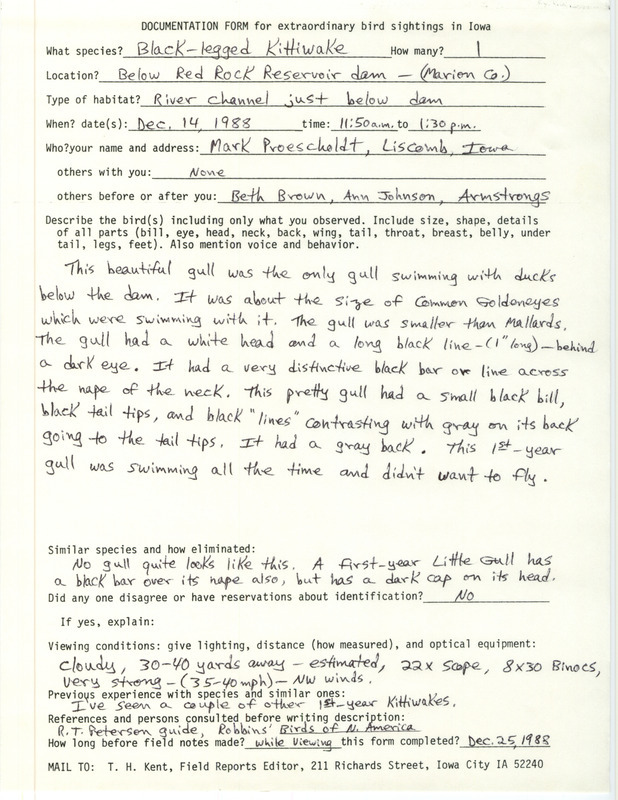 DOCUMENTATION FORM for extraordinary bird sightings in Iowa
What species? Black-legged Kittiwake How many? 1
Location? Below Red Rock Reservoir dam - (Marion Co.)
Type of habitat? River channel just below dam
When? date(s): Dec. 14, 1988 time: 11:50 a.m. to 1:30 p.m.
Who?your name and address: Mark Proescholdt, Liscomb, Iowa
others with you: None
others before or after you: Beth Brown, Ann Johnson, Armstrongs
Describe the bird(s) including only what you observed. Include size, shape, details
of all parts (bill, eye, head, neck, back, wing, tail, throat, breast, belly, under
tail, legs, feet). Also mention voice and behavior.
This beautiful gull was the only gull swimming with ducks
below the dam. It was about the size of Common Goldeneyes
which were swimming with it. The gull was smaller than Mallards.
The gull had a white head and a long black line-(1" long)-behind
a dark eye. It had a very distinctive black bar or line across
the nape of the neck. This pretty gull had a small black bill,
black tail tips, and black "lines" contrasting with gray on its back
going to the tail tips. It had a gray back. This 1st-year
gull was swimming all the time and didn't want to fly.
Similar species and how eliminated:
No gull quite looks like this. A first-year Little Gull has
a black bar over its nape also, but has a dark cap on its head.
Did any one disagree or have reservations about identification? No
If yes, explain:
Viewing conditions: give lighting, distance (how measured), and optical equipment:
Cloudy, 30-40 yards away - estimated, 22x Scope, 8x30 Binocs,
very strong - (35-40 mph) - NW winds.
Previous experience with species and similar ones:
I've seen a couple of other 1st-year Kittiwakes.
References and persons consulted before writing description:
R.T. Peterson guide, Robbins' Birds of N. America
How long before field notes made? while viewing this form completed? Dec. 25, 1988
MAIL TO: T. H. Kent, Field Reports Editor, 211 Richards Street, Iowa City IA 52240